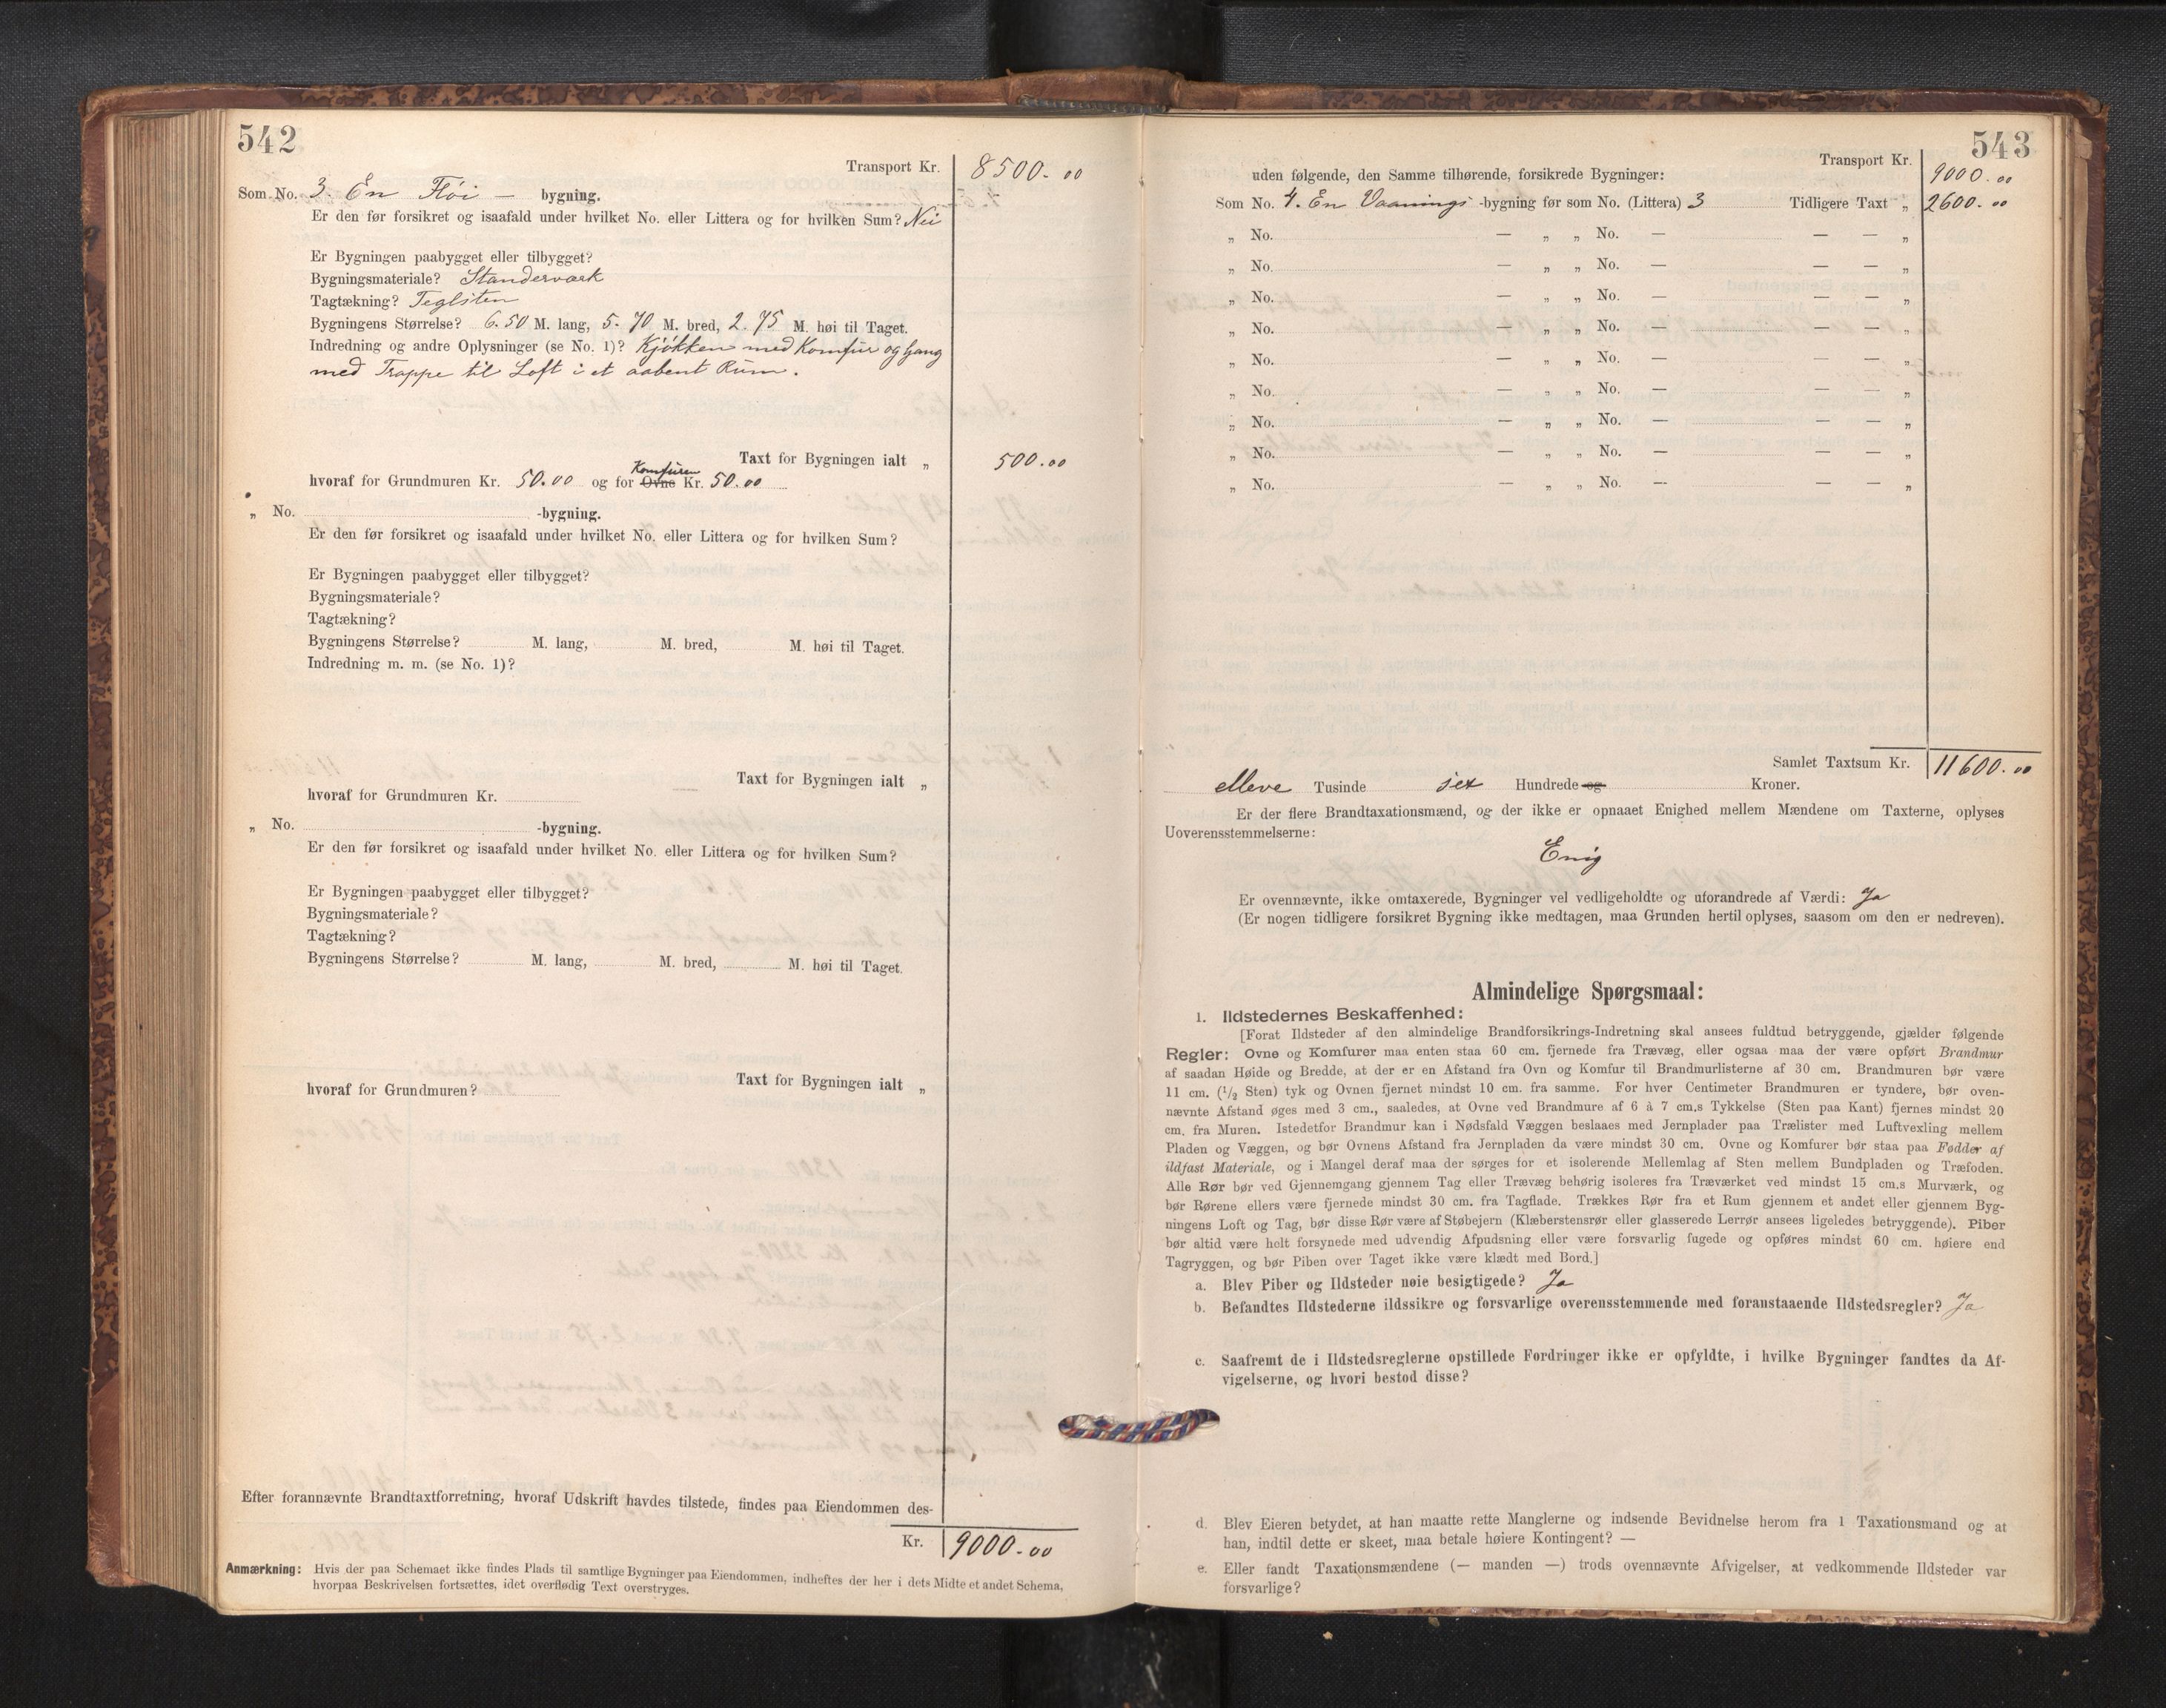 542
Transport Kr. 8500.00
Som No. 3. En Fløi — bygning.
Er den før forsikret og isaafald under hvilket No. eller Littera og for hvilken Sum? Nei
Er Bygningen paabygget eller tilbygget?
Bygningsmateriale? Standerværk
Tagtækning? Teglsten
Bygningens Størrelse? 6.50 M. lang, 5.70 M. bred, 2.75 M. høi til Taget.
Indredning og andre Oplysninger (se No. 1)? Kjøkken med Komfur og Gang
med Trappe til Loft i et aabent Rum.
Taxt for Bygningen ialt „ 500.00
Komfuren
hvoraf for Grundmuren Kr. 50.00 og for Ovne Kr. 50.00
„ No. -bygning.
Er den før forsikret og isaafald under hvilket No. eller Littera og for hvilken Sum?
Er Bygningen paabygget eller tilbygget?
Bygningsmateriale?
Tagtækning?
Bygningens Størrelse? M. lang, M. bred, M. høi til Taget.
Indredning m. m. (se No. 1)?
Taxt for Bygningen ialt „
hvoraf for Grundmuren Kr.
„ No. -bygning.
Er den før forsikret og isaafald under hvilket No. eller Littera og for hvilken Sum?
Er Bygningen paabygget eller tilbygget?
Bygningsmateriale?
Tagtækning?
Bygningens Størrelse? M. lang, M. bred, M. høi til Taget.
Taxt for Bygningen ialt „
hvoraf for Grundmuren?
Efter forannævnte Brandtaxtforretning, hvoraf Udskrift havdes tilstede, findes paa Eiendommen des-
Kr. 9000.00
Anmærkning: Hvis der paa Schemaet ikke findes Plads til samtlige Bygninger paa Eiendommen, indheftes der her i dets Midte et andet Schema,
hvorpaa Beskrivelsen fortsættes, idet overflødig Text overstryges.
543
Transport Kr. 9000.00
uden følgende, den Samme tilhørende, forsikrede Bygninger:
Som No. 4. En Vaanings -bygning før som No. (Littera) 3 Tidligere Taxt „ 2600.00
„ No. — „ „ No. — — — „
„ No. — „ „ No. — — — „
„ No. — „ „ No. — — — „
„ No. — „ „ No. — — — „
„ No. — „ „ No. — — — „
„ No. — „ „ No. — — — „
„ No. — „ „ No. — — — „
„ No. — „ „ No. — — — „
„ No. — „ „ No. — — — „
Samlet Taxtsum Kr. 11600.00
elleve Tusinde sex Hundrede og Kroner.
Er der flere Brandtaxationsmænd, og der ikke er opnaaet Enighed mellem Mændene om Taxterne, oplyses
Uoverensstemmelserne:
Enig
Er ovennævnte, ikke omtaxerede, Bygninger vel vedligeholdte og uforandrede af Værdi: Ja
(Er nogen tidligere forsikret Bygning ikke medtagen, maa Grunden hertil oplyses, saasom om den er nedreven).
Almindelige Spørgsmaal:
1. Ildstedernes Beskaffenhed:
[Forat Ildsteder af den almindelige Brandforsikrings-Indretning skal ansees fuldtud betryggende, gjælder følgende
Regler: Ovne og Komfurer maa enten staa 60 cm. fjernede fra Trævæg, eller ogsaa maa der være opført Brandmur
af saadan Høide og Bredde, at der er en Afstand fra Ovn og Komfur til Brandmurlisterne af 30 cm. Brandmuren bør være
11 cm. (1/2 Sten) tyk og Ovnen fjernet mindst 10 cm. fra samme. For hver Centimeter Brandmuren er tyndere, bør oven-
nævnte Afstand øges med 3 cm., saaledes, at Ovne ved Brandmure af 6 à 7 cm.s Tykkelse (Sten paa Kant) fjernes mindst 20
cm. fra Muren. Istedetfor Brandmur kan i Nødsfald Væggen beslaaes med Jernplader paa Trælister med Luftvexling mellem
Pladen og Væggen, og bør Ovnens Afstand fra Jernpladen da være mindst 30 cm. Ovne og Komfurer bør staa paa Fødder af
ildfast Materiale, og i Mangel deraf maa der sørges for et isolerende Mellemlag af Sten mellem Bundpladen og Træfoden.
Alle Rør bør ved Gjennemgang gjennem Tag eller Trævæg behørig isoleres fra Træværket ved mindst 15 cm.s Murværk, og
bør Rørene ellers være fjernede mindst 30 cm. fra Tagflade. Trækkes Rør fra et Rum gjennem et andet eller gjennem Byg-
ningens Loft og Tag, bør disse Rør være af Støbejern (Klæberstensrør eller glasserede Lerrør ansees ligeledes betryggende). Piber
bør altid være helt forsynede med udvendig Afpudsning eller være forsvarlig fugede og opføres mindst 60 cm. høiere end
Tagryggen, og bør Piben over Taget ikke være klædt med Bord.]
a. Blev Piber og Ildsteder nøie besigtigede? Ja
b. Befandtes Ildstederne ildssikre og forsvarlige overensstemmende med foranstaaende Ildstedsregler? Ja
c. Saafremt de i Ildstedsreglerne opstillede Fordringer ikke er opfyldte, i hvilke Bygninger fandtes da Af-
vigelserne, og hvori bestod disse?
d. Blev Eieren betydet, at han maatte rette Manglerne og indsende Bevidnelse herom fra 1 Taxationsmand og at
han, indtil dette er skeet, maa betale høiere Kontingent? —
e. Eller fandt Taxationsmændene (— manden —) trods ovennævnte Afvigelser, at vedkommende Ildsteder var
forsvarlige?